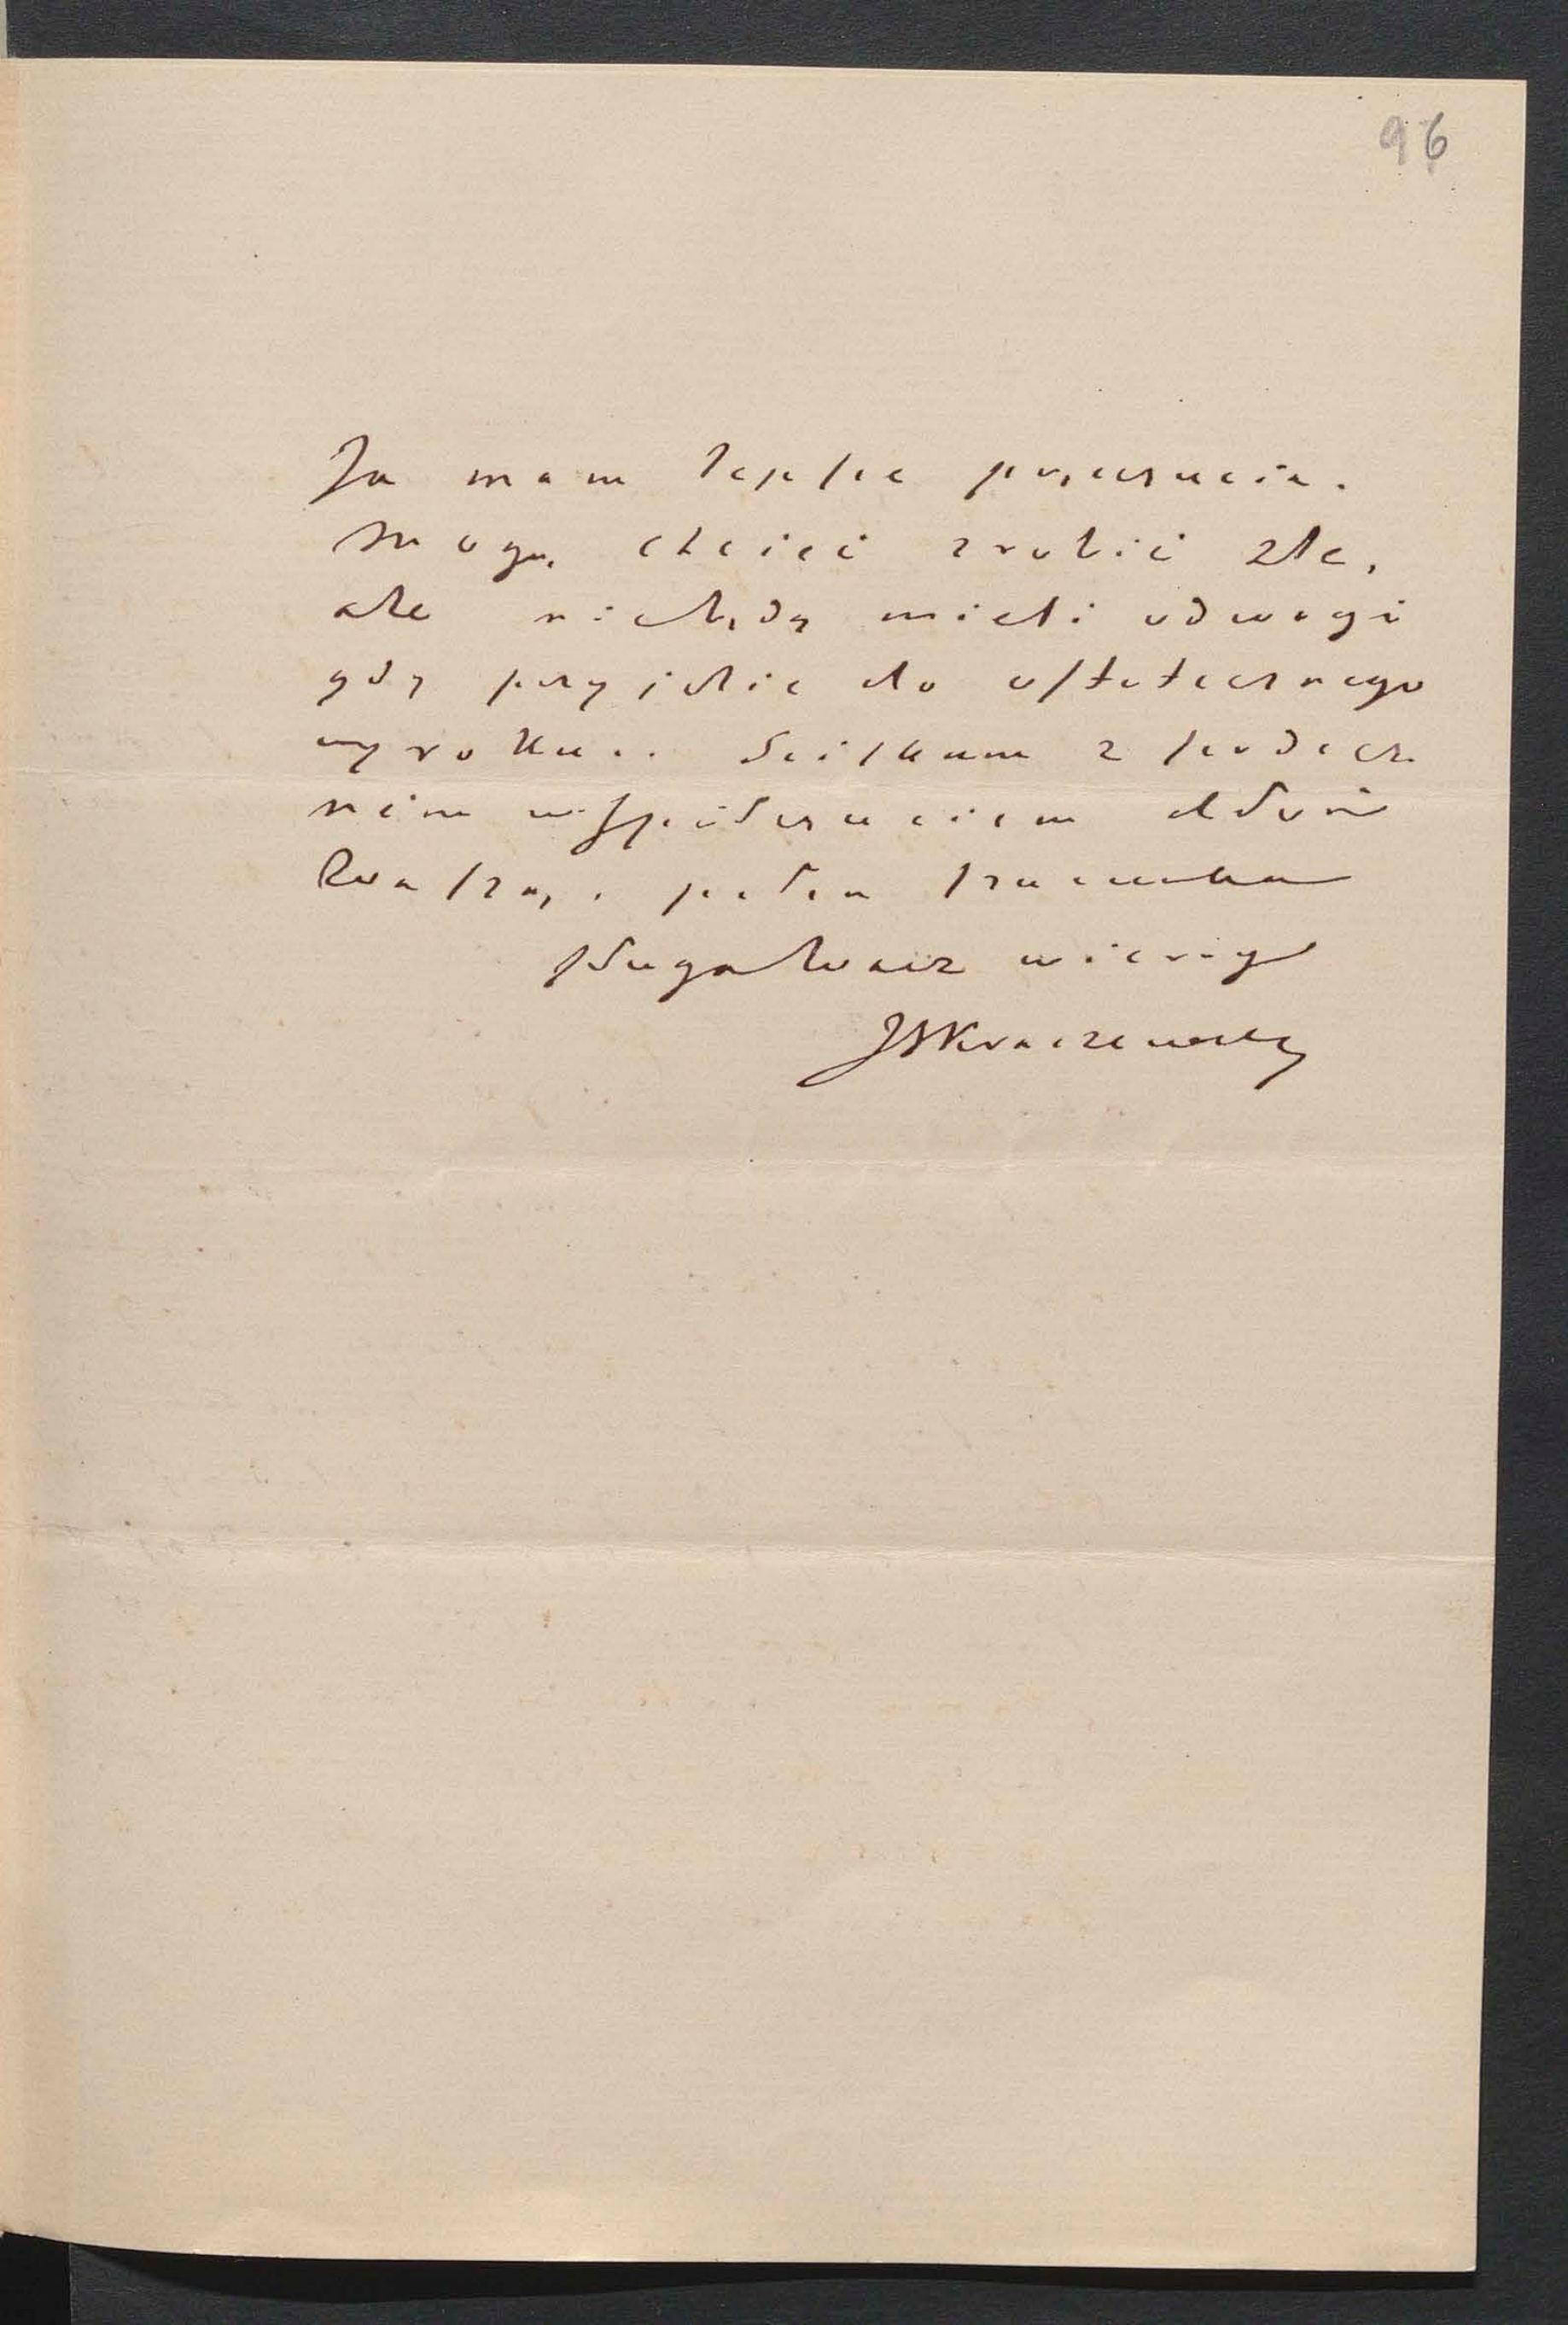 96
Ja mam lepsze przeczucia.
Mogą chcieć zrobić złe,
ale niebędą mieli odwagi
gdy przyjdzie do ostatecznego
wyroku.. Sciskam z serdecz
nem współczuciem dłoń
Waszą, i pełen szacunku
sługa Wasz wierny
JIKraszewski